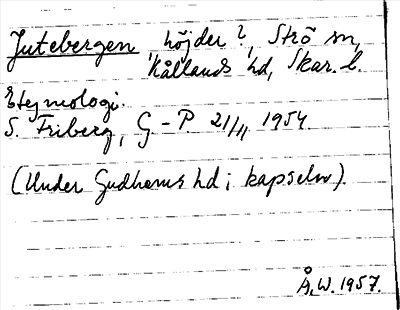 Jutebergen, höjder?, Strö sn,
Kållands hd, Skar. l.
Etymologi.
S. Friberg, G.-P. 21/11 1954.
(Under Gudhems hd i kapseln).
Å.W. 1957.